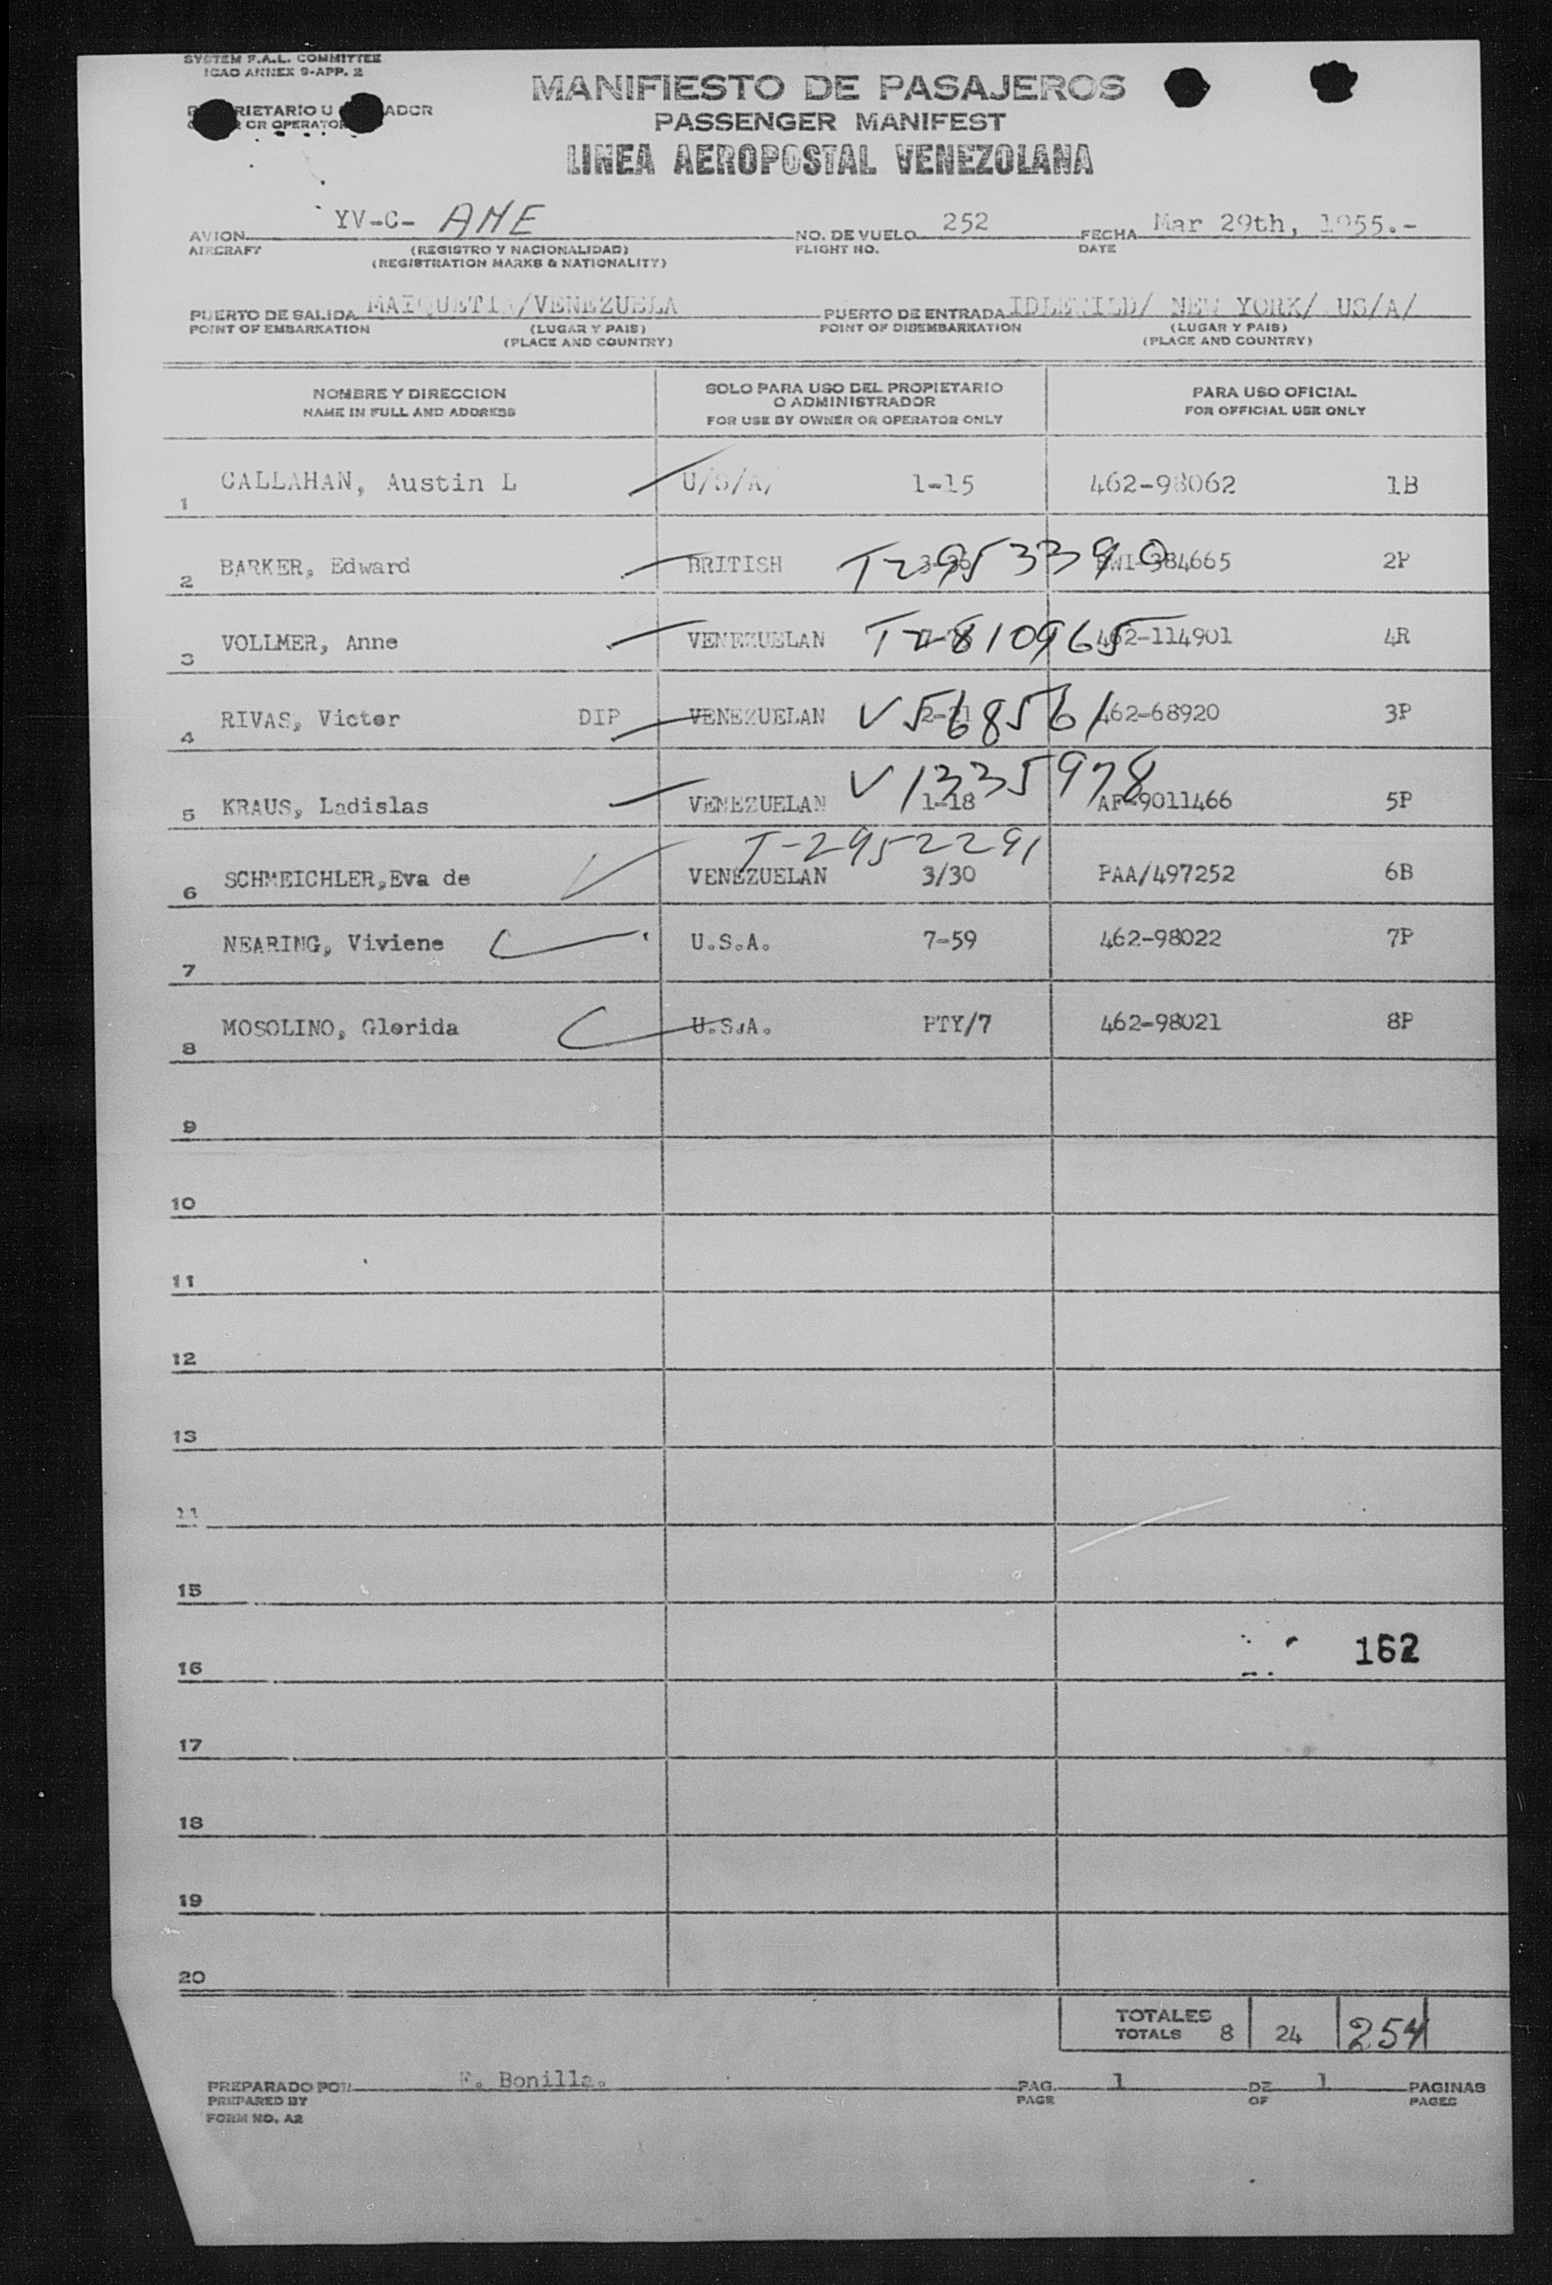 SYSTEM F.A.L. COMMITTEE
ICAO ANNEX 9-APP. 2
MANIFIESTO DE PASAJEROS
PASSENGER MANIFEST
LINEA AEROPOSTAL VENEZOLANA
OR OPERATOR
AVION YV-C- AME NO. DE VUELO 252 FECHA Mar 29th, 1955.-
AIRCRAFT (REGISTRO Y NACIONALIDAD) FLIGHT NO. DATE
(REGISTRATION MARKS & NATIONALITY)
PUERTO DE SALIDA MAIQUETIA/VENEZUELA PUERTO DE ENTRADA IDLEWILD/ NEW YORK/ US/A/
POINT OF EMBARKATION (LUGAR Y PAIS) POINT OF DISEMBARKATION (LUGAR Y PAIS)
(PLACE AND COUNTRY) (PLACE AND COUNTRY)
NOMBRE Y DIRECCION SOLO PARA USO DEL PROPIETARIO O ADMINISTRADOR PARA USO OFICIAL
NAME IN FULL AND ADDRESS FOR USE BY OWNER OR OPERATOR ONLY FOR OFFICIAL USE ONLY
1 CALLAHAN, Austin L U/S/A/ 1-15 462-98062 1B
2 BARKER, Edward BRITISH T-2953390 BWI-384665 2P
3 VOLLMER, Anne VENEZUELAN T-2810965 462-114901 4R
4 RIVAS, Victor DIP VENEZUELAN V568561 462-68920 3P
5 KRAUS, Ladislas VENEZUELAN V1335978 1-18 AF-9011466 5P
T-2952291
6 SCHMEICHLER,Eva de VENEZUELAN 3/30 PAA/497252 6B
7 NEARING, Viviene U.S.A. 7-59 462-98022 7P
8 MOSOLINO, Glorida U.S.A. PTY/7 462-98021 8P
9
10
11
12
13
15
16 162
17
18
19
20
TOTALES
TOTALS 8 24 254
PREPARADO POR F. Bonilla. PAG. 1 DE 1 PAGINAS
PREPARED BY PAGE OF PAGES
FORM NO. A2